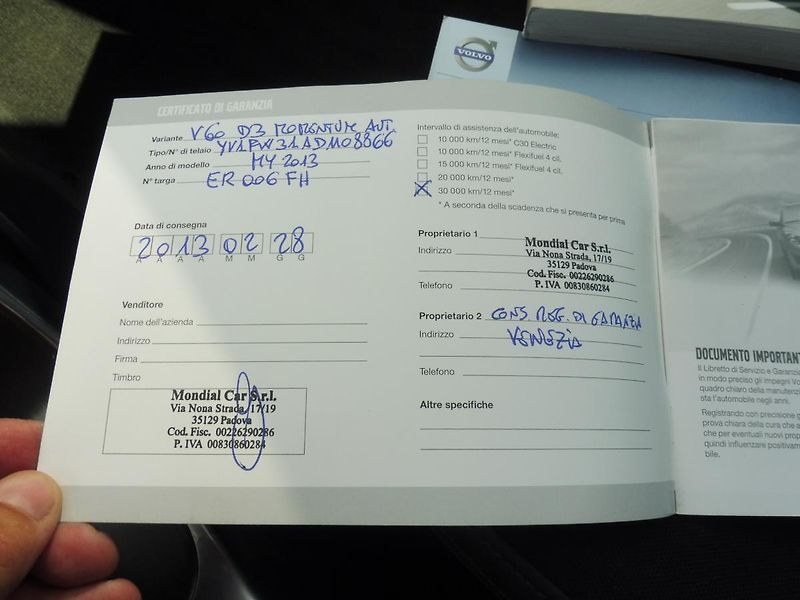 VOLVO
CERTIFICATO DI GARANZIA
Variante V60 D3 MOMENTUM AUT.
Tipo/N° di telaio YV1FW31ADM08866
Anno di modello MY 2013
N° targa ER 006 FH
Data di consegna
2013 02 28
A A A A M M G G
Venditore
Nome dell'azienda
Indirizzo
Firma
Timbro
Mondial Car S.r.l.
Via Nona Strada, 17/19
35129 Padova
Cod. Fisc. 00226290286
P. IVA 00830860284
Intervallo di assistenza dell'automobile:
10 000 km/12 mesi* C30 Electric
10 000 km/12 mesi* Flexifuel 4 cil.
15 000 km/12 mesi* Flexifuel 4 cil.
20 000 km/12 mesi*
30 000 km/12 mesi*
* A seconda della scadenza che si presenta per prima
Proprietario 1
Indirizzo
Telefono
Mondial Car S.r.l.
Via Nona Strada, 17/19
35129 Padova
Cod. Fisc. 00226290286
P. IVA 00830860284
Proprietario 2 CONS. REG. DI GARANZIA
Indirizzo VENEZIA
Telefono
Altre specifiche
DOCUMENTO IMPORTANT
Il Libretto di Servizio e Garanzia
in modo preciso gli impegni Vo
quadro chiaro della manutenz
sta l'automobile negli anni.
Registrando con precisione g
prova chiara della cura che a
che per eventuali nuovi prop
quindi influenzare positivam
bile.